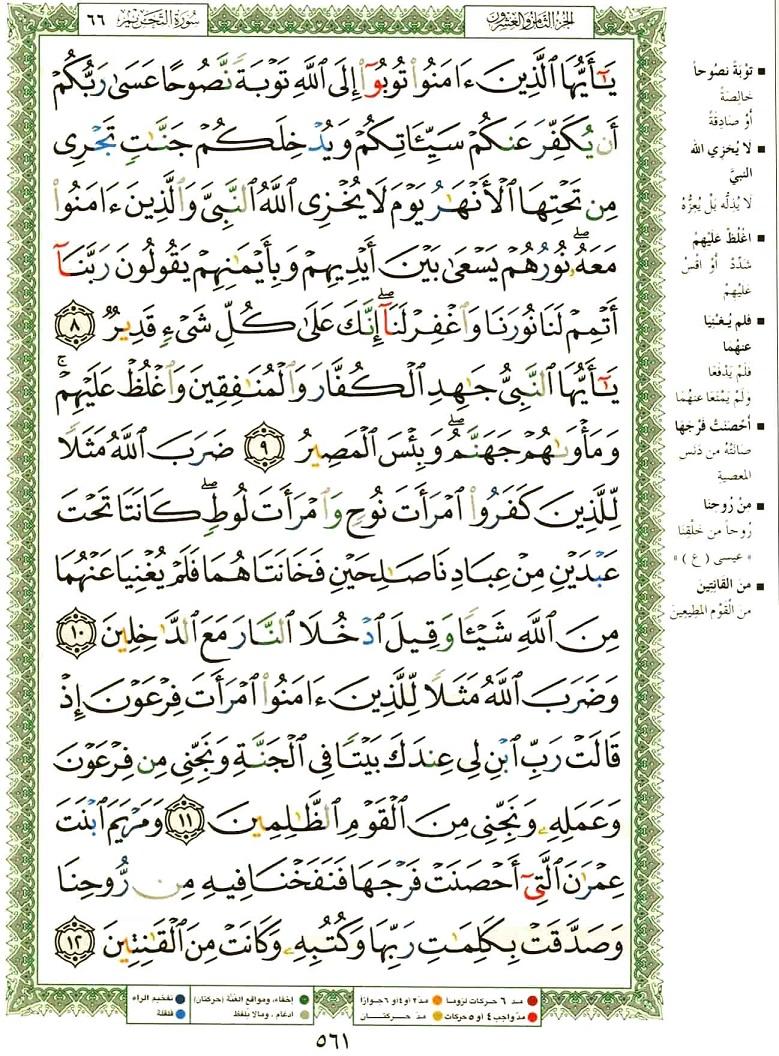 سُورَةُ التَّحْرِيمِ ٦٦
الجزء الثامن والعشرون
يَٰٓأَيُّهَا ٱلَّذِينَ ءَامَنُوا۟ تُوبُوٓا۟ إِلَى ٱللَّهِ تَوْبَةً نَّصُوحًا عَسَىٰ رَبُّكُمْ
أَن يُكَفِّرَ عَنكُمْ سَيِّـَٔاتِكُمْ وَيُدْخِلَكُمْ جَنَّٰتٍ تَجْرِى
مِن تَحْتِهَا ٱلْأَنْهَٰرُ يَوْمَ لَا يُخْزِى ٱللَّهُ ٱلنَّبِىَّ وَٱلَّذِينَ ءَامَنُوا۟
مَعَهُۥ ۖ نُورُهُمْ يَسْعَىٰ بَيْنَ أَيْدِيهِمْ وَبِأَيْمَٰنِهِمْ يَقُولُونَ رَبَّنَآ
أَتْمِمْ لَنَا نُورَنَا وَٱغْفِرْ لَنَآ ۖ إِنَّكَ عَلَىٰ كُلِّ شَىْءٍ قَدِيرٌ ٨
يَٰٓأَيُّهَا ٱلنَّبِىُّ جَٰهِدِ ٱلْكُفَّارَ وَٱلْمُنَٰفِقِينَ وَٱغْلُظْ عَلَيْهِمْ ۚ
وَمَأْوَىٰهُمْ جَهَنَّمُ ۖ وَبِئْسَ ٱلْمَصِيرُ ٩ ضَرَبَ ٱللَّهُ مَثَلًا
لِّلَّذِينَ كَفَرُوا۟ ٱمْرَأَتَ نُوحٍ وَٱمْرَأَتَ لُوطٍ ۖ كَانَتَا تَحْتَ
عَبْدَيْنِ مِنْ عِبَادِنَا صَٰلِحَيْنِ فَخَانَتَاهُمَا فَلَمْ يُغْنِيَا عَنْهُمَا
مِنَ ٱللَّهِ شَيْـًٔا وَقِيلَ ٱدْخُلَا ٱلنَّارَ مَعَ ٱلدَّٰخِلِينَ ١٠
وَضَرَبَ ٱللَّهُ مَثَلًا لِّلَّذِينَ ءَامَنُوا۟ ٱمْرَأَتَ فِرْعَوْنَ إِذْ
قَالَتْ رَبِّ ٱبْنِ لِى عِندَكَ بَيْتًا فِى ٱلْجَنَّةِ وَنَجِّنِى مِن فِرْعَوْنَ
وَعَمَلِهِۦ وَنَجِّنِى مِنَ ٱلْقَوْمِ ٱلظَّٰلِمِينَ ١١ وَمَرْيَمَ ٱبْنَتَ
عِمْرَٰنَ ٱلَّتِىٓ أَحْصَنَتْ فَرْجَهَا فَنَفَخْنَا فِيهِ مِن رُّوحِنَا
وَصَدَّقَتْ بِكَلِمَٰتِ رَبِّهَا وَكُتُبِهِۦ وَكَانَتْ مِنَ ٱلْقَٰنِتِينَ ١٢
■ تَوْبَةً نَصُوحاً
خَالِصَةً
أَوْ صَادِقَةً
■ لا يُخزِي الله
النبيَّ
لَا يُذِلُّه بَلْ يُعِزُّهُ
■ اغْلُظْ عَلَيْهِمْ
شَدِّدْ أَوْ اقْسُ
عليهِمْ
■ فَلم يُغْنِيَا
عنهُمَا
فَلَمْ يَدْفَعَا
وَلَمْ يَمْنَعَا عنهُمَا
■ أَحْصَنَتْ فَرْجَها
صَانَتْهُ من دَنَس
المعصيةِ
■ مِنْ رُوحِنا
رُوحاً من خَلْقِنا
« عيسى ( ع ) »
■ مِنَ القَانِتِين
من القَوْمِ المطيعين
● مد ٦ حركات لزوما ● مد ٢ او ٤ او ٦ جوازا
● مدّ واجب ٤ او ٥ حركات ● مد حركتان
● إخفاء، ومواقع الغنّة (حركتان)
● ادغام، ومالا يُلفظ
● تفخيم الراء
● قلقلة
٥٦١